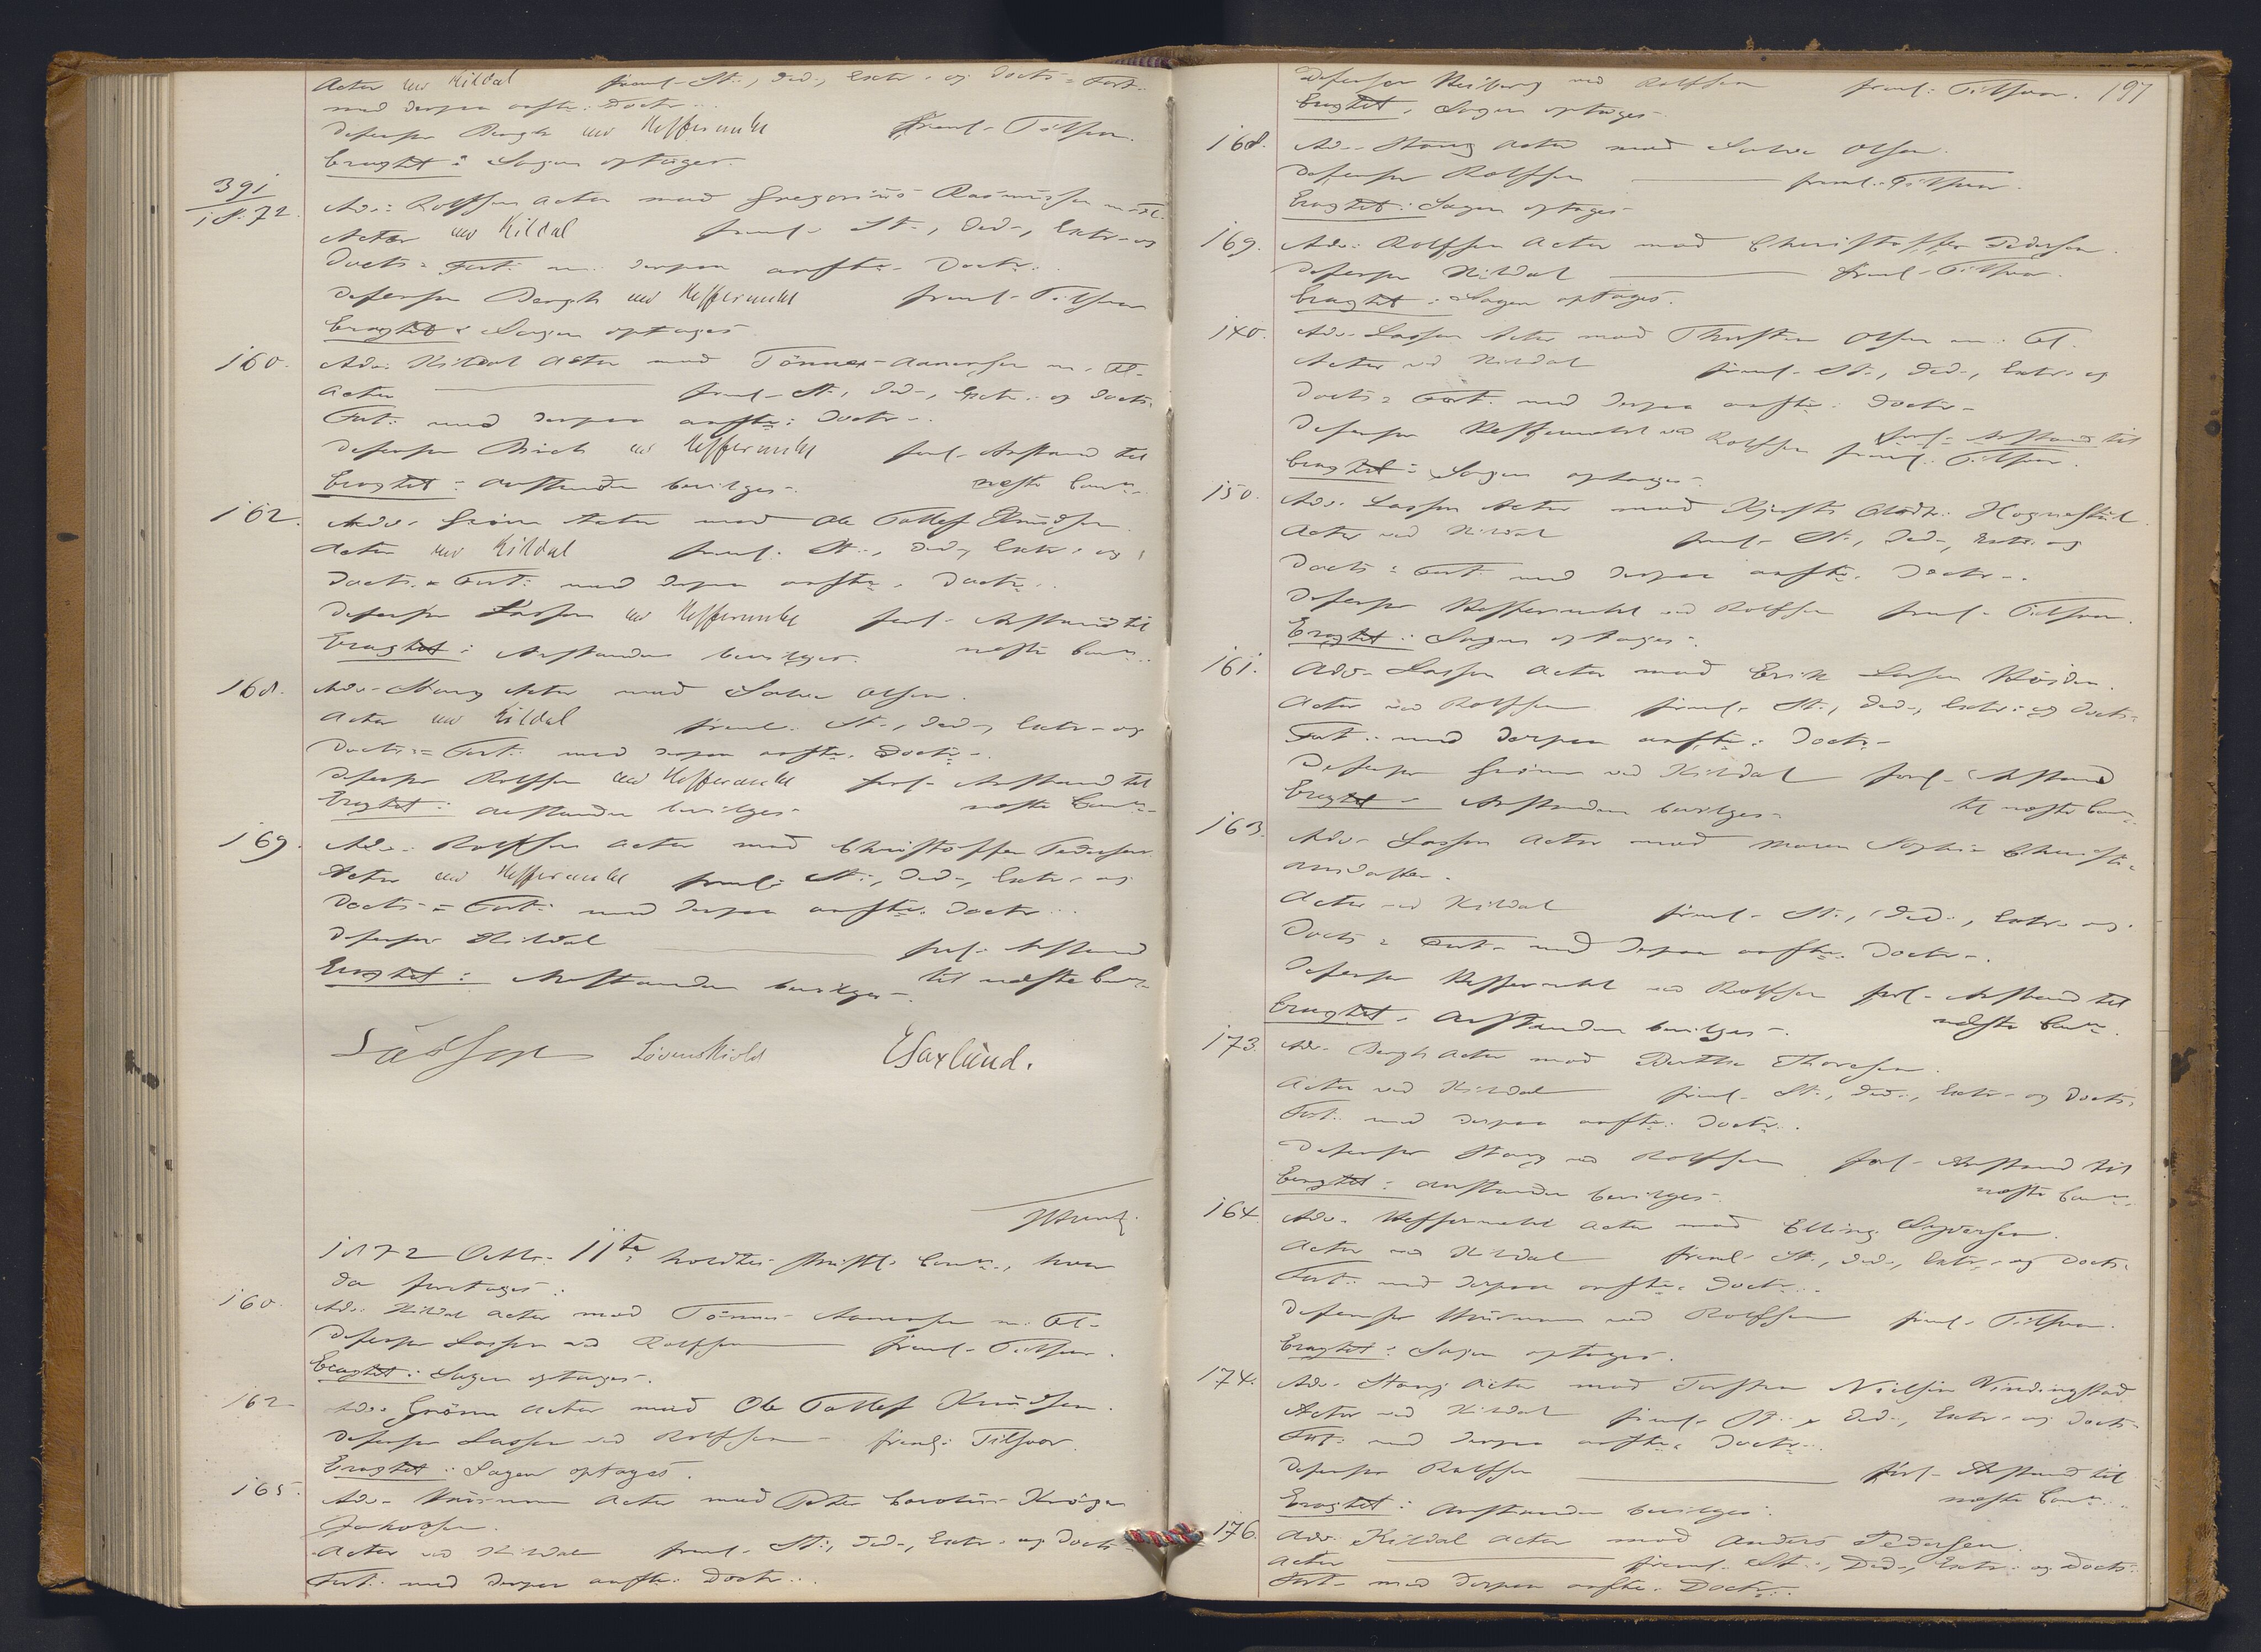 Actor ved Kildal freml. St., Ded., Extr. og Docts. Fort.
med derpaa anfte. Doctr.
Defensor Bergh ved Heffermehl freml. Tilsvar.
Eragtet: Sagen optages.
391/1872. Adv. Rolfsen Actor mod Gregorius Rasmussen
Actor ved Kildal freml. St., Ded., Extr. og
Docts. Fort. m. derpaa anfte. Doctr.
Defensor Bergh ved Heffermehl freml. Tilsvar
Eragtet: Sagen optages.
160. Adv. Kildal Actor mod Tönnes Aanensen m. Fl.
Actor freml. St., Ded., Extr. og Docts.
Fort. med derpaa anfte. Doctr.
Defensor Birch ved Heffermehl forl. Anstand til
Eragtet: Anstanden bevilges. næste
162. Adv. Grönn Actor mod Ole Tallef Knudsen
Actor ved Kildal freml. St., Ded., Extr. og
Docts. Fort. med derpaa anfte. Doctr.
Defensor Lassen ved Heffermehl forl. Anstand til
Eragtet: Anstanden bevilges. næste
168. Adv. Stang Actor mod Olsen.
Actor ved Kildal freml. St., Ded., Extr. og
Docts. Fort. med derpaa anfte. Doctr.
Defensor Rolfsen ved Heffermehl forl. Anstand til
Eragtet: Anstanden bevilges. næste
169. Adv. Rolfsen Actor mod Christoffer Pedersen
Actor ved Heffermehl freml. St., Ded., Extr. og
Docts. Fort. med derpaa anfte. Doctr.
Defensor Kildal forl. Anstand
Eragtet: Anstanden bevilges. til næste
Lasson Løvenskiold Saxlund.
1872 Octbr. 11te holdtes, hvor
da foretoges:
160. Adv. Kildal Actor mod Tönnes Aanensen m. Fl.
Defensor Lassen ved Rolfsen freml. Tilsvar.
Eragtet: Sagen optages.
162. Adv. Grönn Actor mod Ole Tallef Knudsen.
Defensor Lassen ved Rolfsen freml. Tilsvar.
Eragtet: Sagen optages.
165. Adv. Actor mod Peter Kröger
Jakobsen.
Actor ved Kildal freml. St., Ded., Extr. og Docts.
Fort. med derpaa anfte. Doctr.
197
Defensor Reiberg ved Rolfsen freml. Tilsvar.
Eragtet: Sagen optages.
168. Adv. Stang Actor mod Olsen.
Defensor Rolfsen freml. Tilsvar.
Eragtet: Sagen optages.
169. Adv. Rolfsen Actor mod Christoffer Pedersen.
Defensor Kildal freml. Tilsvar.
Eragtet: Sagen optages.
140. Adv. Lassen Actor mod Thorsten Olsen m. Fl.
Actor ved Kildal freml. St., Ded., Extr. og
Docts. Fort. med derpaa anfte. Doctr.
Defensor Heffermehl ved Rolfsen forl. Anstand til
freml. Tilsvar.
Eragtet: Sagen optages.
150. Adv. Lassen Actor mod Kjersti Olsdtr. Hognestöl.
Actor ved Kildal freml. St., Ded., Extr. og
Docts. Fort. med derpaa anfte. Doctr.
Defensor Heffermehl ved Rolfsen freml. Tilsvar.
Eragtet: Sagen optages.
161. Adv. Lassen Actor mod Erik Larsen.
Actor ved Rolfsen freml. St., Ded., Extr. og Docts.
Fort. med derpaa anfte. Doctr.
Defensor Grönn ved Kildal forl. Anstand
Eragtet: Anstanden bevilges. til næste
163. Adv. Lassen Actor mod Maren Sophie Christi-
ansdatter.
Actor ved Kildal freml. St., Ded., Extr. og
Docts. Fort. med derpaa anfte. Doctr.
Defensor Heffermehl ved Rolfsen forl. Anstand til
Eragtet: Anstanden bevilges. næste
173. Adv. Bergh Actor mod Berthe Thoresen.
Actor ved Kildal freml. St., Ded., Extr. og Docts.
Fort. med derpaa anfte. Doctr.
Defensor Stang ved Rolfsen forl. Anstand til
Eragtet: Anstanden bevilges. næste
164. Adv. Heffermehl Actor mod Elling Syversen.
Actor ved Kildal freml. St., Ded., Extr. og Docts.
Fort. med derpaa anfte. Doctr.
Defensor ved Rolfsen freml. Tilsvar.
Eragtet: Sagen optages.
174. Adv. Stang Actor mod Torsten Nielsen Vindingstad.
Actor ved Kildal freml. St., Ded., Extr. og Docts.
Fort. med derpaa anfte. Doctr.
Defensor Rolfsen forl. Anstand til
Eragtet: Anstanden bevilges. næste
176. Adv. Kildal Actor mod Anders Pedersen.
Actor freml. St., Ded., Extr. og Docts.
Fort. med derpaa anfte. Doctr.